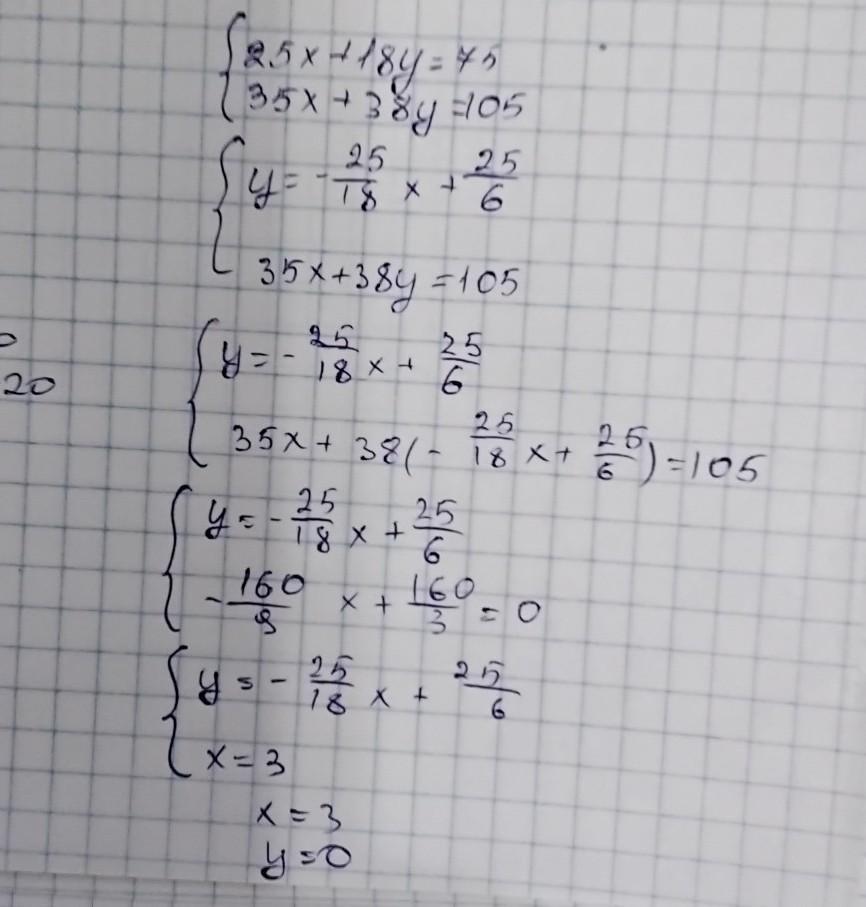 {25x+18y=75
35x+38y=105
{y=-25/18 x+25/6
35x+38y=105
20
{y=-25/18 x+25/6
35x+38(-25/18 x+25/6)=105
{y=-25/18 x+25/6
-160/9 x+160/3=0
{y=-25/18 x+25/6
x=3
x=3
y=0